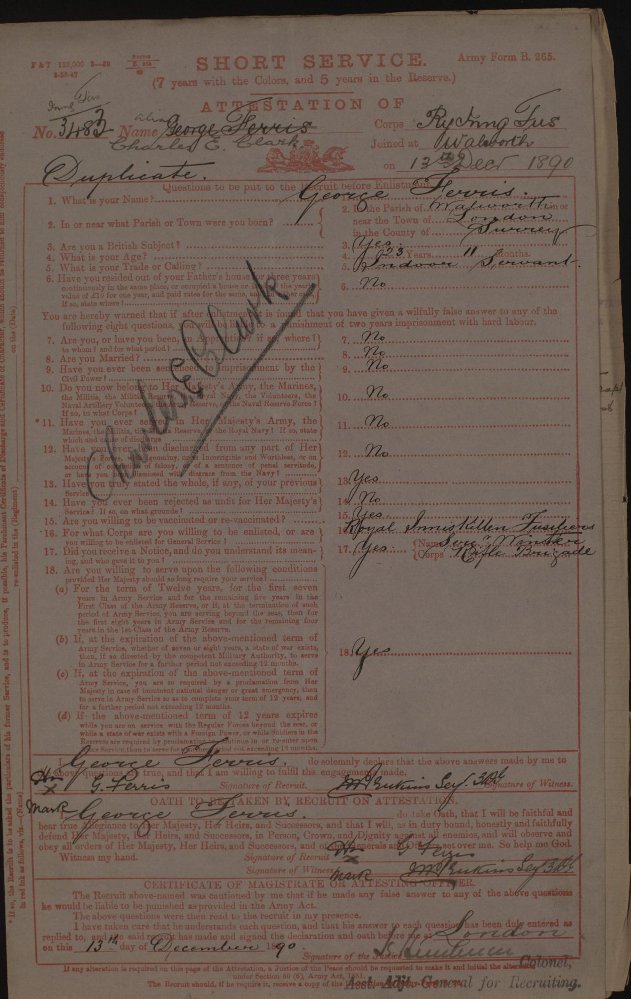 F & T
SHORT SERVICE.
Army Form B. 265.
(7 years with the Colors, and 5 years in the Reserve.)
ATTESTATION OF
No. 3483 Name alias George Ferris Corps Ry Innis Fus
Charles E. Clark Joined at Walworth
on 13th Decr 1890
Duplicate.
Questions to be put to the Recruit before Enlistment.
1. What is your Name?
George Ferris.
2. In or near what Parish or Town were you born?
2. In the Parish of Walworth in or
near the Town of London
in the County of Surrey
3. Are you a British Subject?
3. Yes
4. What is your Age?
4. 23 Years 11 Months.
5. What is your Trade or Calling?
5. Indoor Servant.
6. Have you resided out of your Father's house for three years
continuously in the same place, or occupied a house or
value of £10 for one year, and paid rates for the same
If so, state where?
6. No
Charles E Clark
You are hereby warned that if after enlistment it is found that you have given a wilfully false answer to any of the
following eight questions, you will be liable to a punishment of two years imprisonment with hard labour.
7. Are you, or have you been,
to whom? and for what period?
7. No
8. Are you Married?
8. No
9. Have you ever been sentenced to imprisonment by the
Civil Power?
9. No
10. Do you now belong to Her Majesty's Army, the Marines,
the Militia, the Volunteers, the
Naval Artillery Volunteers, Reserve, or Naval Reserve Force?
If so, to what Corps?
10. No
*11. Have you ever served in Her Majesty's Army, the
Marines, the Militia, or the Royal Navy? If so, state
which and cause of discharge
11. No
12. Have you ever been discharged from any part of Her
Majesty's Forces as Incorrigible and Worthless, or on
account of conviction of felony, or of a sentence of penal servitude,
or have you been dismissed with disgrace from the Navy?
12. No
13. Have you truly stated the whole, if any, of your previous
Service?
13. Yes
14. Have you ever been rejected as unfit for Her Majesty's
Service? If so, on what grounds?
14. No
15. Are you willing to be vaccinated or re-vaccinated?
15. Yes
16. For what Corps are you willing to be enlisted, or are
you willing to be enlisted for General Service?
Royal Inniskillen Fusiliers
17. Did you receive a Notice, and do you understand its meaning, and who gave it to you?
17. Yes
Name Winter
Corps Rifle Brigade
18. Are you willing to serve upon the following conditions
provided Her Majesty should so long require your service?
(a) For the term of Twelve years, for the first seven
years in Army Service and for the remaining five years in the
First Class of the Army Reserve, or if, at the termination of such
period of Army Service, you are serving beyond the seas, then for
the first eight years in Army Service and for the remaining four
years in the 1st Class of the Army Reserve.
(b) If, at the expiration of the above-mentioned term of
Army Service, whether of seven or eight years, a state of war exists,
then, if so directed by the competent Military Authority, to serve
in Army Service for a further period not exceeding 12 months.
(c) If, at the expiration of the above-mentioned term of
Army Service, you are so required by a proclamation from Her
Majesty in case of imminent national danger or great emergency, then
to serve in Army Service so as to complete your term of 12 years, and
for a further period not exceeding 12 months.
18. Yes
(d) If the above-mentioned term of 12 years expires
while you are on service with the Regular Forces beyond the seas, or
while a state of war exists with a Foreign Power, or while Soldiers in the
Reserve are required by proclamation to continue in or re-enter upon
Army Service, then to serve for a further period not exceeding 12 months.
I George Ferris. do solemnly declare that the above answers made by me to
the above questions are true, and that I am willing to fulfil the engagements made.
His
X G. Ferris Signature of Recruit. Signature of Witness.
Mark
OATH TO BE TAKEN BY RECRUIT ON ATTESTATION.
I George Ferris. do take Oath, that I will be faithful and
bear true Allegiance to Her Majesty, Her Heirs, and Successors, and that I will, as in duty bound, honestly and faithfully
defend Her Majesty, Her Heirs, and Successors, in Person, Crown, and Dignity against all enemies, and will observe and
obey all orders of Her Majesty, Her Heirs, and Successors, and of the Generals and Officers set over me. So help me God.
Witness my hand.
Signature of Recruit His X Mark G Ferris
Signature of Witness
CERTIFICATE OF MAGISTRATE OR ATTESTING OFFICER.
The Recruit above-named was cautioned by me that if he made any false answer to any of the above questions
he would be liable to be punished as provided in the Army Act.
The above questions were then read to the recruit in my presence.
I have taken care that he understands each question, and that his answer to each question has been duly entered as
replied to, and the said recruit has made and signed the declaration and oath before me at London
on this 13th day of December 1890.
Signature of the Justice
Colonel,
If any alteration is required on this page of the Attestation, a Justice of the Peace should be requested to make it and initial the alteration
under Section 80 (6), Army Act, 1881.
The Recruit should, if he require it, receive a copy of the
Asst. Adjt. General for Recruiting.